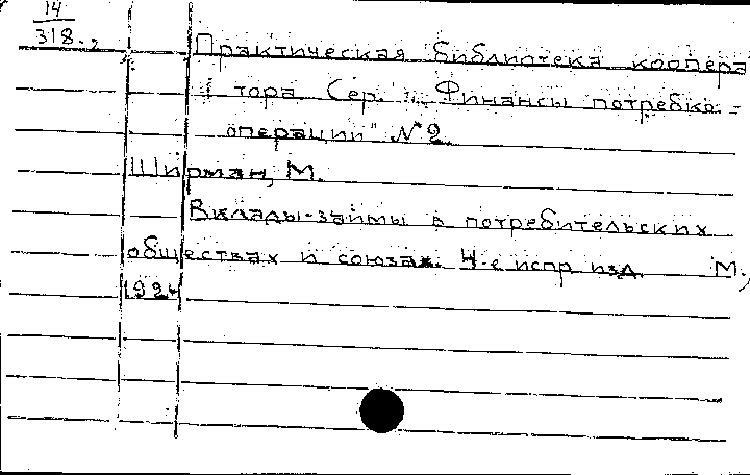 14
318.,
Практическая библиотека коопера
тора Сер. „Финансы потребко-
операции" № 2.
Ширман, М.
Вклады-займы в потребительских
обществах и союзах. 4-е испр изд. М.,
1924